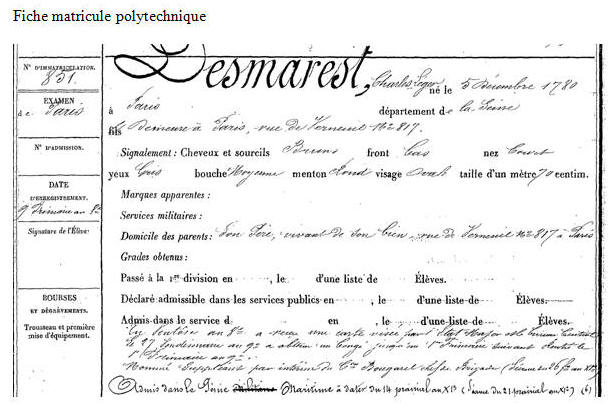 Fiche matricule polytechnique
N° D'IMMATRICULATION.
831.
EXAMEN
de Paris
N° D'ADMISSION.
DATE
D'ENREGISTREMENT.
9 frimaire an 8e
Signature de l'Élève:
BOURSES
ET DÉGRÈVEMENTS.
Trousseau et première
mise d'équipement.
Desmarest, Charles Léger né le 5 Décembre 1780
à Paris département de la Seine
fils Demeure à Paris, rue de Verneuil N° 817.
Signalement : Cheveux et sourcils Bruns front bas nez Court
yeux Gris bouche Moyenne menton Rond visage Ovale taille d'un mètre 70 centim.
Marques apparentes :
Services militaires :
Domicile des parents: Son Père, vivant de son bien, rue de Verneuil N° 817 à Paris
Grades obtenus :
Passé à la 1re division en , le d'une liste de Élèves.
Déclaré admissible dans les services publics en , le d'une liste de Élèves.
Admis dans le service d en , le d'une liste de Élèves.
En an 8e a reçu une carte visée par l'État Major et le Bureau Central
le 27 Vendémiaire an 9e a obtenu un congé jusqu'au 1er Frimaire suivant
1er Frimaire an 9e.
Nommé Suppléant par intérim du Cen Bougarel chef de Brigade
Admis dans le Génie Maritime à dater du 14 prairial an XI (Lettre du 21 prairial an XI) (6)